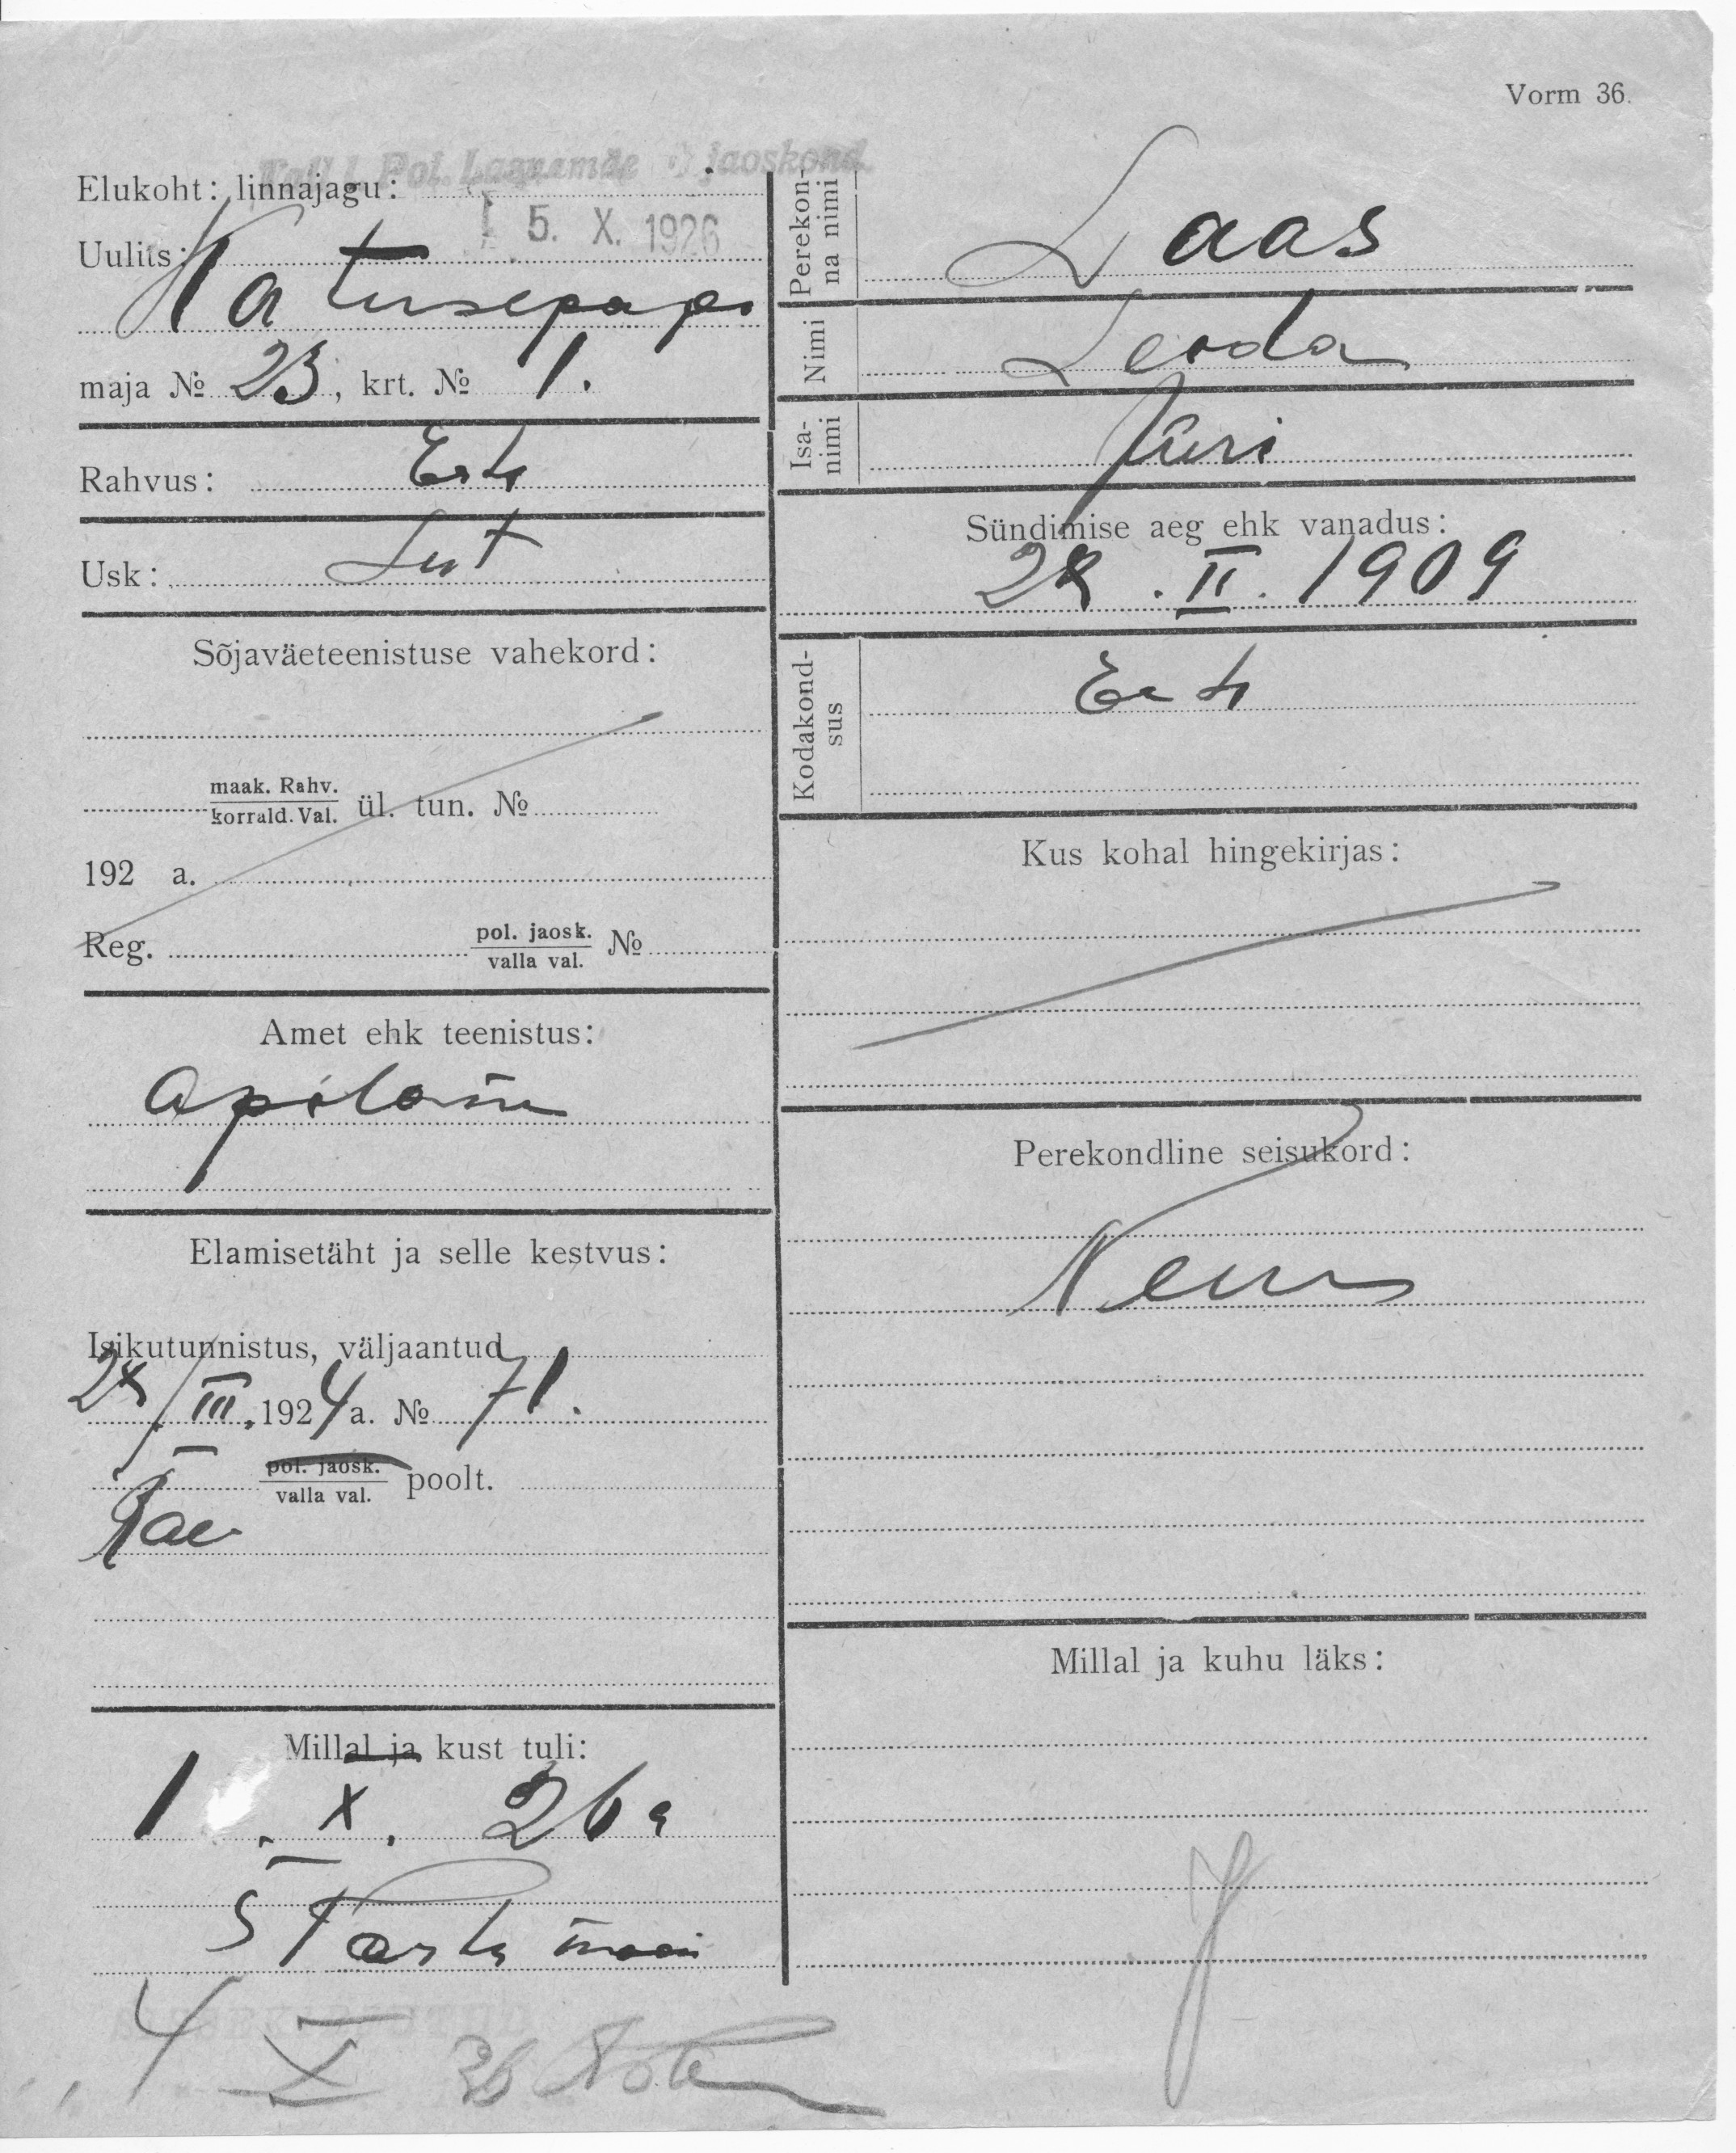 Vorm 36.
Pol. Lasnamäe jaoskond.
Elukoht: linnajagu:
5. X. 1926
Uulits:
Katusepapi
maja № 23, krt. № 1.
Rahvus: Esti
Usk: Lut
Sõjaväeteenistuse vahekord:
maak. Rahv.
korrald. Val. ül. tun. №
192 a.
Reg. pol. jaosk.
valla val. №
Amet ehk teenistus:
õpilane
Elamisetäht ja selle kestvus:
Isikutunnistus, väljaantud
III 1924 a. № 71.
pol. jaosk.
valla val. poolt.
Rae
Millal ja kust tuli:
1 . X . 26 a
Perekonna nimi
Laas
Nimi
Leida
Isanimi
Jüri
Sündimise aeg ehk vanadus:
II. 1909
Kodakondsus
Esti
Kus kohal hingekirjas:
Perekondline seisukord:
Neiu
Millal ja kuhu läks:
4 X 26